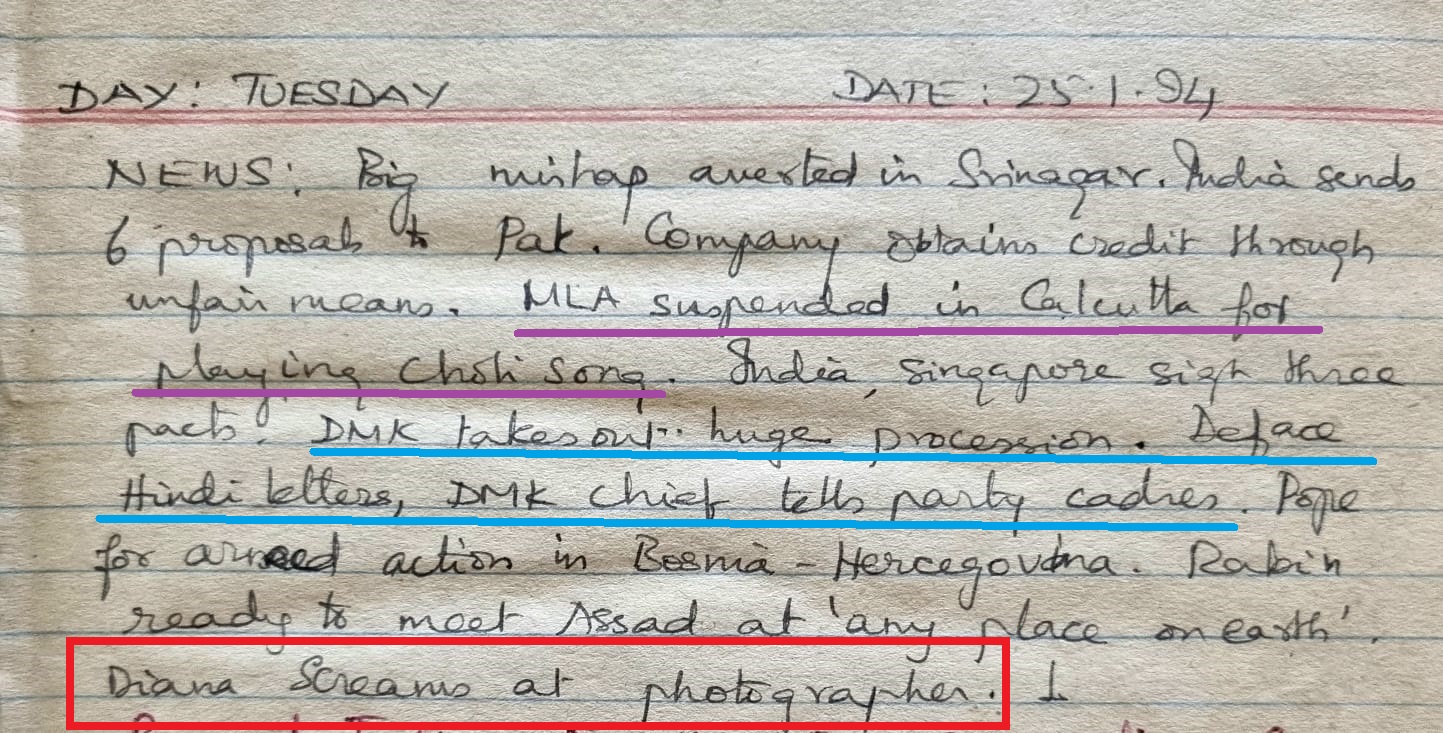 DAY: TUESDAY DATE: 25.1.94
NEWS: Big mishap averted in Srinagar. India sends
6 proposals to Pak. Company obtains credit through
unfair means. MLA suspended in Calcutta for
playing Choli song. India, Singapore sign three
pacts. DMK takes out huge procession. Deface
Hindi letters, DMK chief tells party cadres. Pope
for armed action in Bosnia - Hercegovina. Rabin
ready to meet Assad at 'any place on earth'.
Diana Screams at photographer.